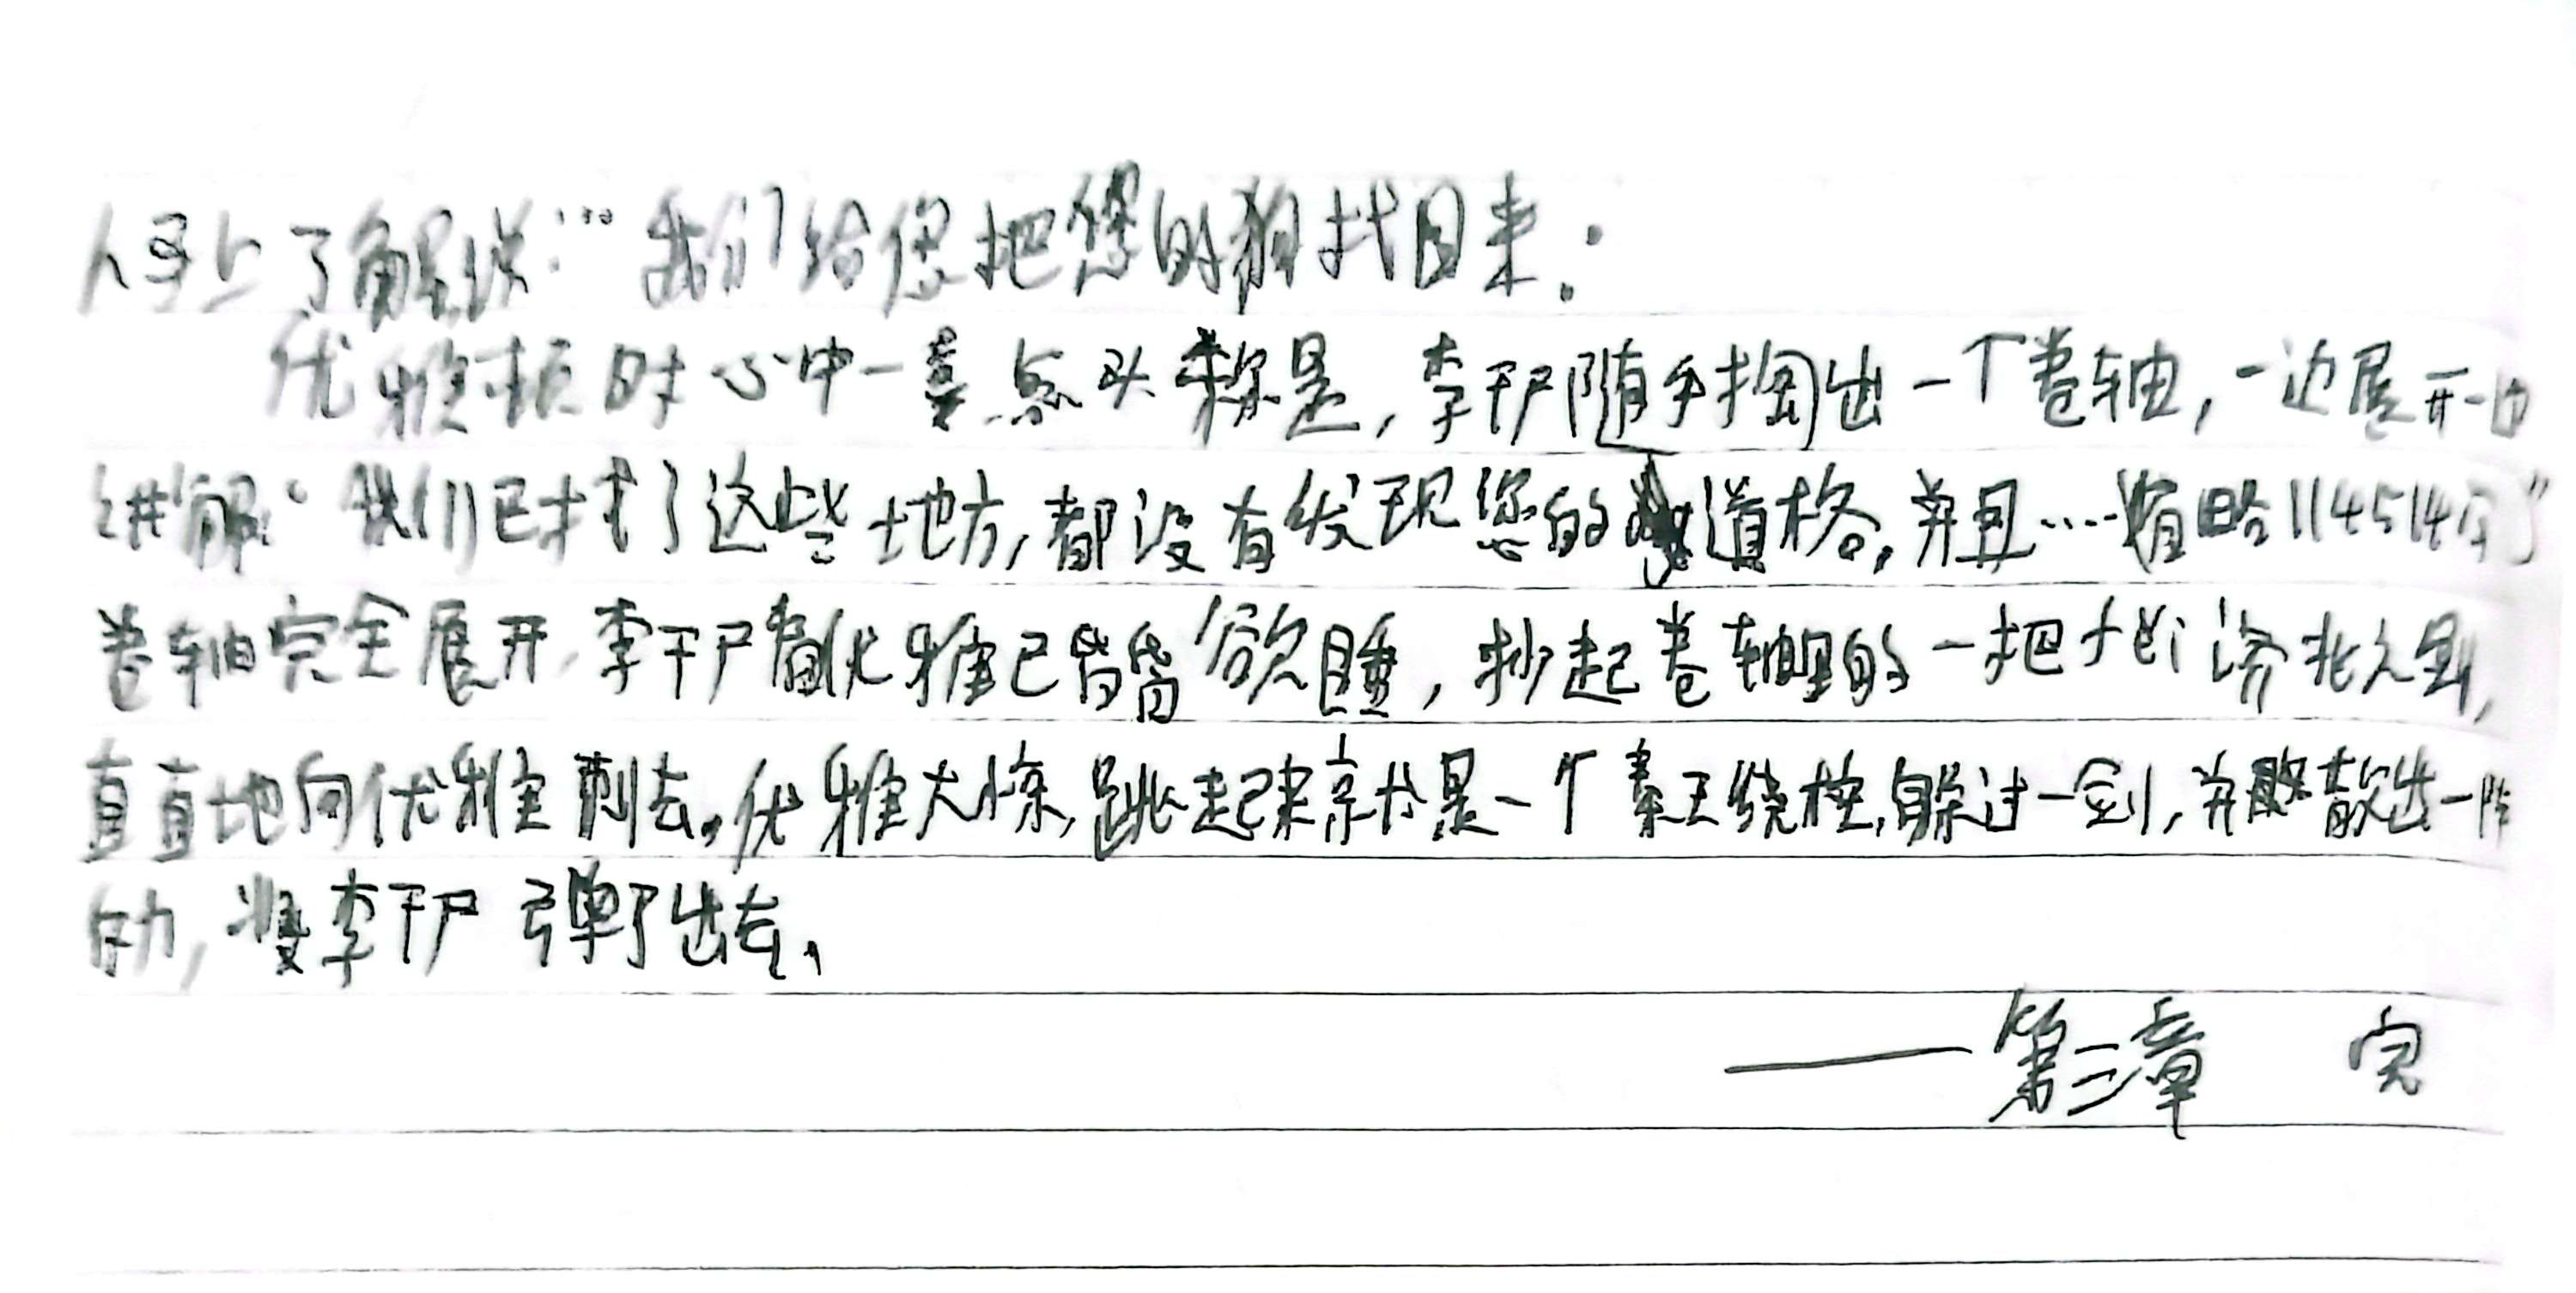 了解说:"我们给您把您的狗找回来:
优雅顿时心中一喜点头称是,李干尸随手掏出一个卷轴,一边展开一边
讲解:"我们已找了这些地方,都没有发现您的道格,并且……省略114514字"
卷轴完全展开,李干尸看优雅已昏昏欲睡,抄起卷轴里的一把
直直地向优雅刺去。优雅大惊,跳起来就是一个秦王绕柱,躲过一剑,并散出一阵
力,将李干尸弹了出去,
——第三章 完